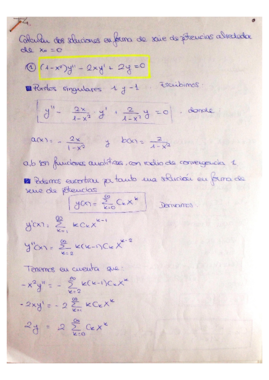 Calcular dos soluciones en forma de serie de potencias alrededor
de x₀=0
① (1-x²)y'' - 2xy' + 2y = 0
Puntos singulares 1 y -1 Escribimos
y'' - 2x/(1-x²) y' + 2/(1-x²) y = 0 donde
a(x) = - 2x/(1-x²) y b(x) = 2/(1-x²)
a, b son funciones analíticas, con radio de convergencia 1
Podemos encontrar por tanto una solución en forma de
serie de potencias
y(x) = ∑_{k=0}^{∞} C_k x^k Derivamos
y'(x) = ∑_{k=1}^{∞} k C_k x^{k-1}
y''(x) = ∑_{k=2}^{∞} k(k-1) C_k x^{k-2}
Tenemos en cuenta que:
-x²y'' = - ∑_{k=2}^{∞} k(k-1) C_k x^k
-2xy' = -2 ∑_{k=1}^{∞} k C_k x^k
2y = 2 ∑_{k=0}^{∞} C_k x^k